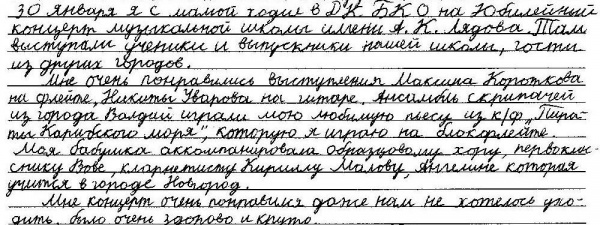 30 января я с мамой ходил в ДК БКО на Юбилейный
концерт музыкальной школы имени А. К. Лядова. Там
выступали ученики и выпускники нашей школы, гости
из других городов.
Мне очень понравились выступления Максима Короткова
на флейте, Никиты Уварова на гитаре. Ансамбль скрипачей
из города Валдай играли мою любимую пьесу из к/ф „Пира-
ты Карибского моря", которую я играю на блокфлейте.
Моя бабушка аккомпанировала образцовому хору, первоклас-
снику Вове, кларнетисту Кириллу Малову, Ангелине которая
учится в городе Новгород.
Мне концерт очень понравился даже нам не хотелось ухо-
дить, было очень здорово и круто.